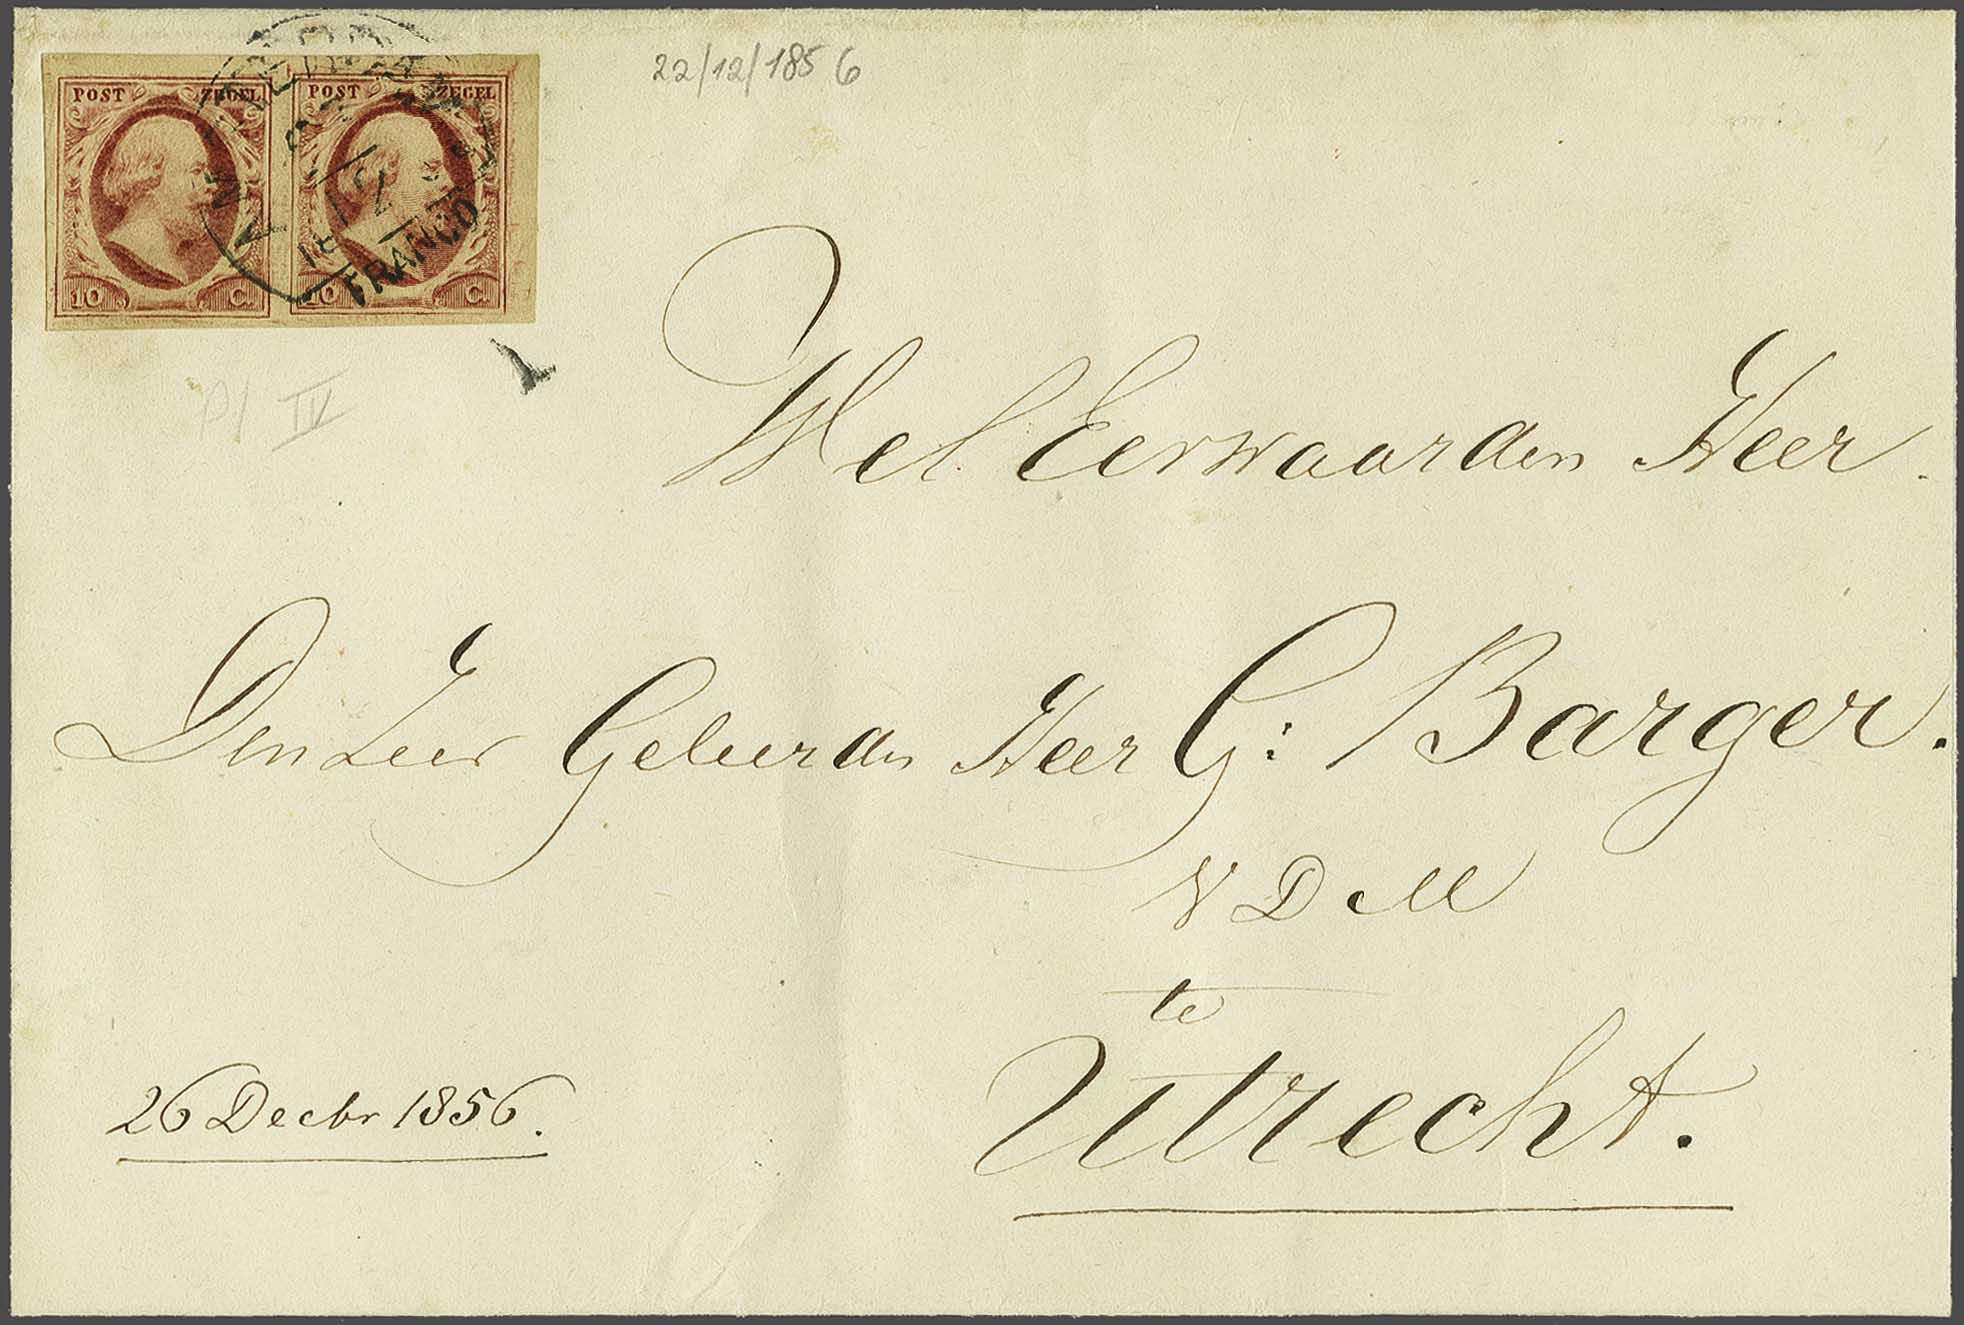 22/12/1856
POST ZEGEL POST ZEGEL
10 C. 10 C.
FRANCO
Pl IV
Wel Eerwaarden Heer
Den Zeer Geleerden Heer G: Barger.
V D M
te
Utrecht.
26 Decbr 1856.